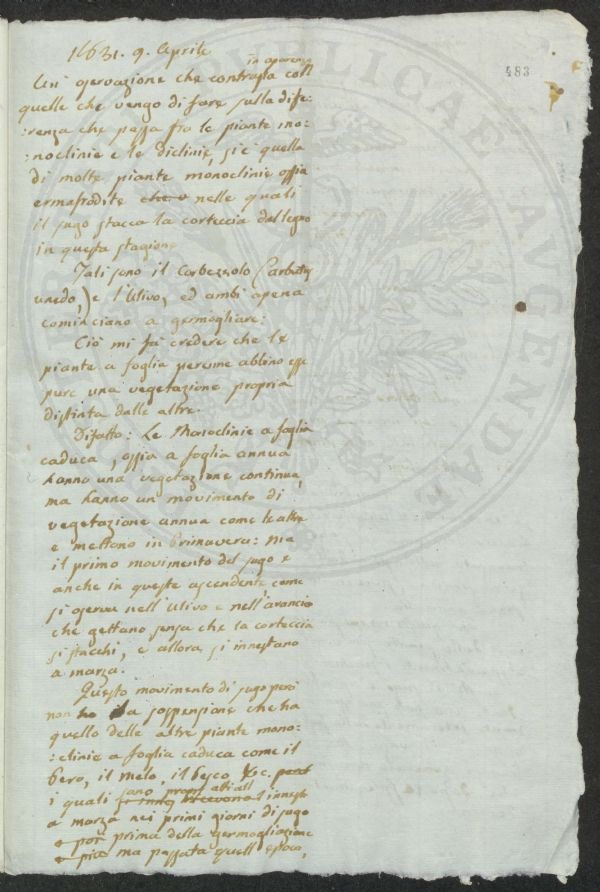 483
1631. 9. Aprile
in aparenza
Un' ofervazione che contrasta coll
quelle che vengo di fare sulla dife:
:renza che passa fra le piante mo:
:noclinie e le diclinie, si è quella
di molte piante monoclinie ossia
ermafrodite che nelle quali
il sugo stacca la corteccia dal legno
in questa stagione
Tali sono il Corbezzolo (arbutus
unedo,) e l'Ulivo, ed ambi apena
cominciano a germogliare:
Ciò mi fà credere che le
piante a foglia perenne abbino
pure una vegetazione propria
distinta dalle altre.
Difatto: Le Monoclinie a foglia
caduca, ossia a foglia annua
hanno una vegetazione continua,
ma hanno un movimento di
vegetazione annua come le altre
e mettono in Primavera: ma
il primo movimento del sugo è
anche in queste ascendente come
si osserva nell'Ulivo e nell'arancio
che gettano senza che la corteccia
si stacchi, e allora si innestano
a marza.
Questo movimento di sugo però
non ha la sospensione che ha
quello delle altre piante mono:
:clinie a foglia caduca come il
Pero, il Melo, il Pesco, &c.
i quali sono propri all'innesto
a marza nei primi giorni di sugo
e poi prima della germogliazione
ma passata quell'epoca,